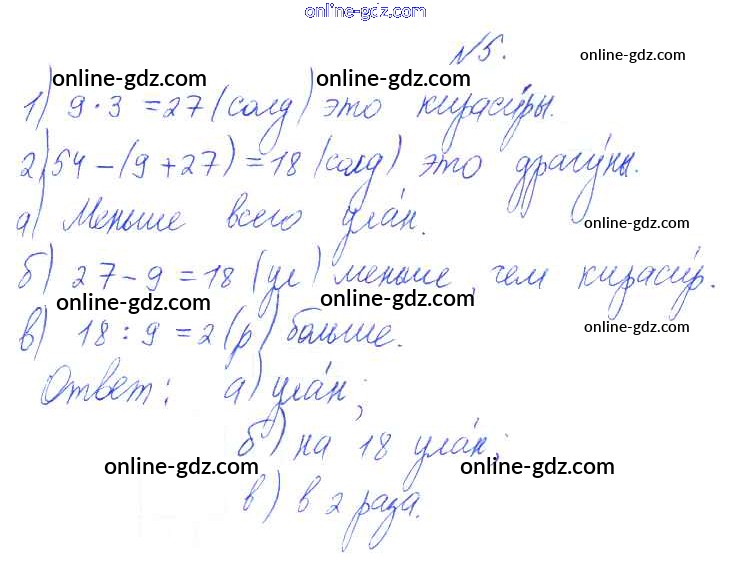 online-gdz.com
№5.
online-gdz.com
online-gdz.com online-gdz.com
1) 9·3=27 (солд) это кираси́ры.
2) 54-(9+27)=18 (солд) это драгу́ны.
а) Меньше всего ула́н.
online-gdz.com
б) 27-9=18 (ул) меньше, чем кираси́р.
online-gdz.com online-gdz.com
в) 18:9=2 (р) больше.
online-gdz.com
Ответ: а) ула́н;
б) на 18 ула́н;
online-gdz.com online-gdz.com
в) в 2 раза.